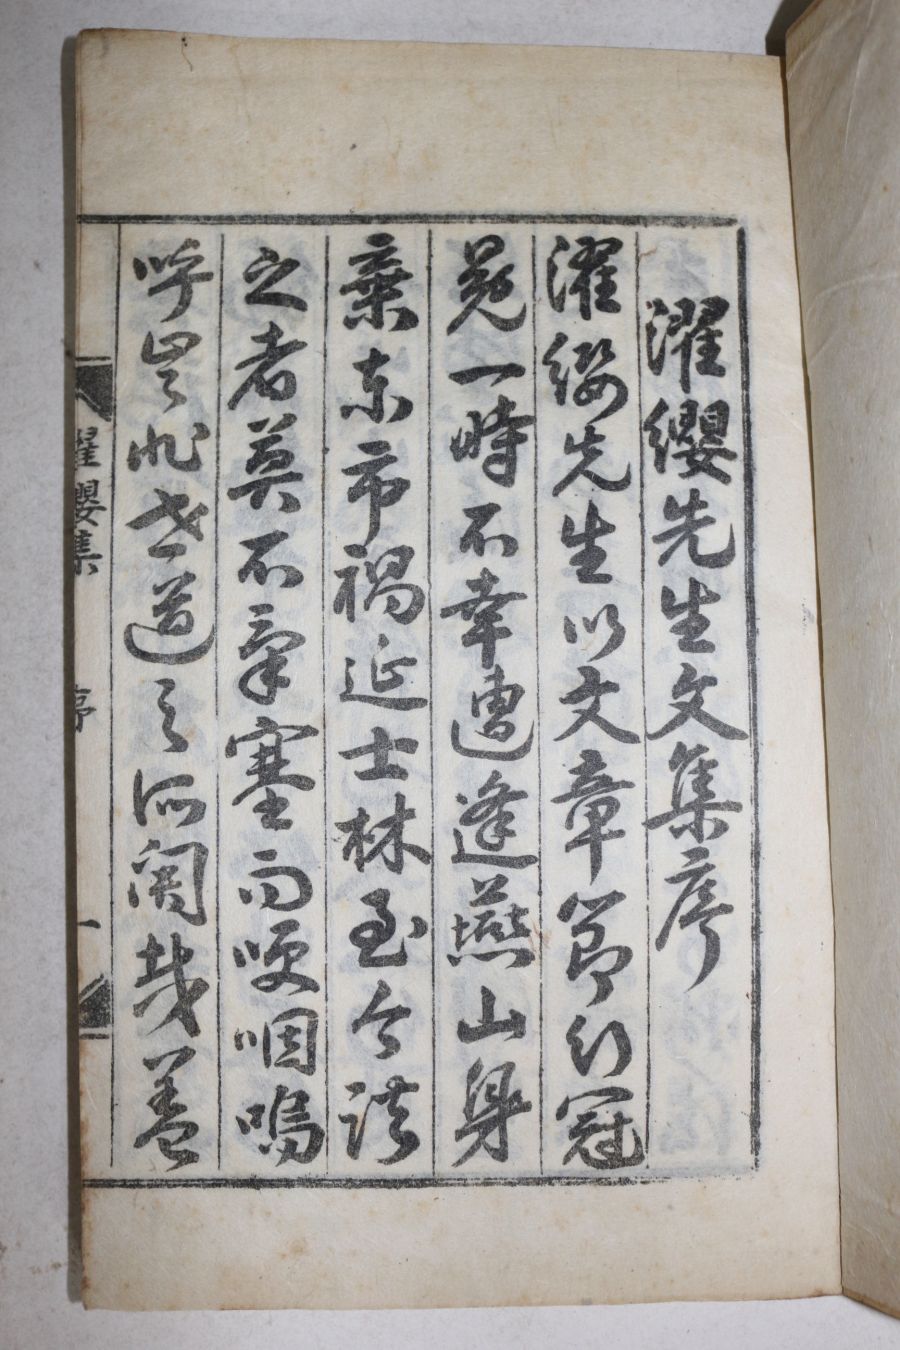 濯纓先生文集序
濯纓先生以文章節行冠
冕一時不幸遭逢燕山身
棄東市禍延士林至今談
之者莫不氣塞而哽咽嗚
呼豈非世道之所関哉盖
濯纓集 序 一